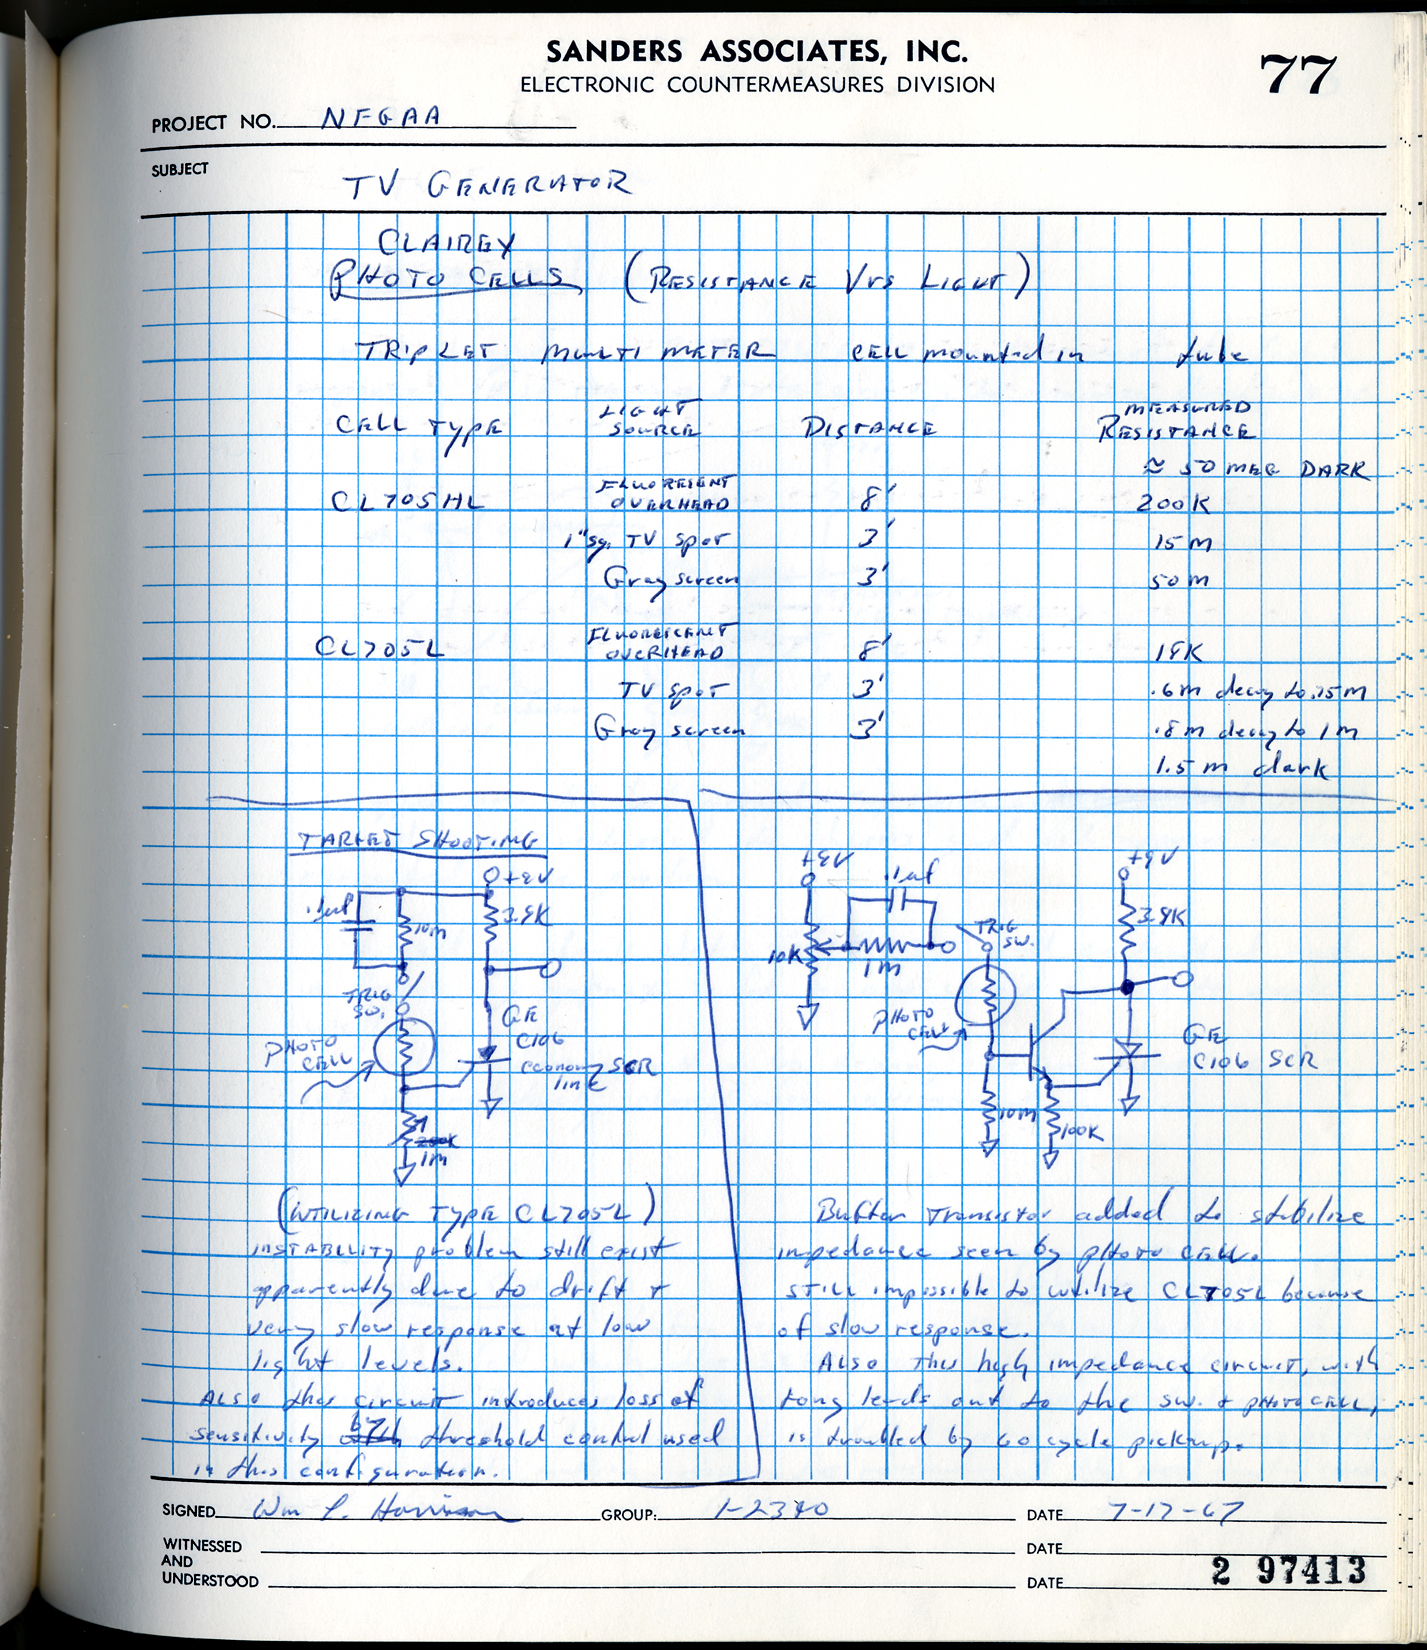 SANDERS ASSOCIATES, INC.
ELECTRONIC COUNTERMEASURES DIVISION
77
PROJECT NO. NFGAA
SUBJECT
TV GENERATOR
CLAIREX
PHOTO CELLS (RESISTANCE Vrs LIGHT)
TRIPLET MULTI METER CELL mounted in tube
CELL TYPE LIGHT SOURCE DISTANCE MEASURED RESISTANCE
≈ 50 MEG DARK
CL705HL FLUORESENT OVERHEAD 8' 200K
1" sq. TV spot 3' 15 M
Gray screen 3' 50 M
CL705L FLUORESCENT OVERHEAD 8' 18K
TV spot 3' .6M decay to .75M
Gray screen 3' .8M decay to 1M
1.5 M dark
TARGET SHOOTING
+9V
.1uf
10M
3.9K
TRIG SW.
PHOTO CELL
GE
C106
economy SCR
line
200K
1M
+9V
.1uf
10K
1M
TRIG SW.
PHOTO CELL
+9V
3.9K
GE
C106 SCR
10M
100K
(UTILIZING TYPE CL705L)
INSTABILITY problem still exist
apparently due to drift +
very slow response at low
light levels.
ALSO this circuit introduces loss of
sensitivity by threshold control used
in this configuration.
Buffer Transistor added to stabilize
impedance seen by PHOTO CELL.
STILL impossible to utilize CL705L because
of slow response.
ALSO This high impedance circuit, with
long leads out to the SW. + PHOTOCELL,
is troubled by 60 cycle pickup.
SIGNED Wm L. Harrison GROUP: 1-2340 DATE 7-17-67
WITNESSED
AND
UNDERSTOOD
DATE
DATE
2 97413